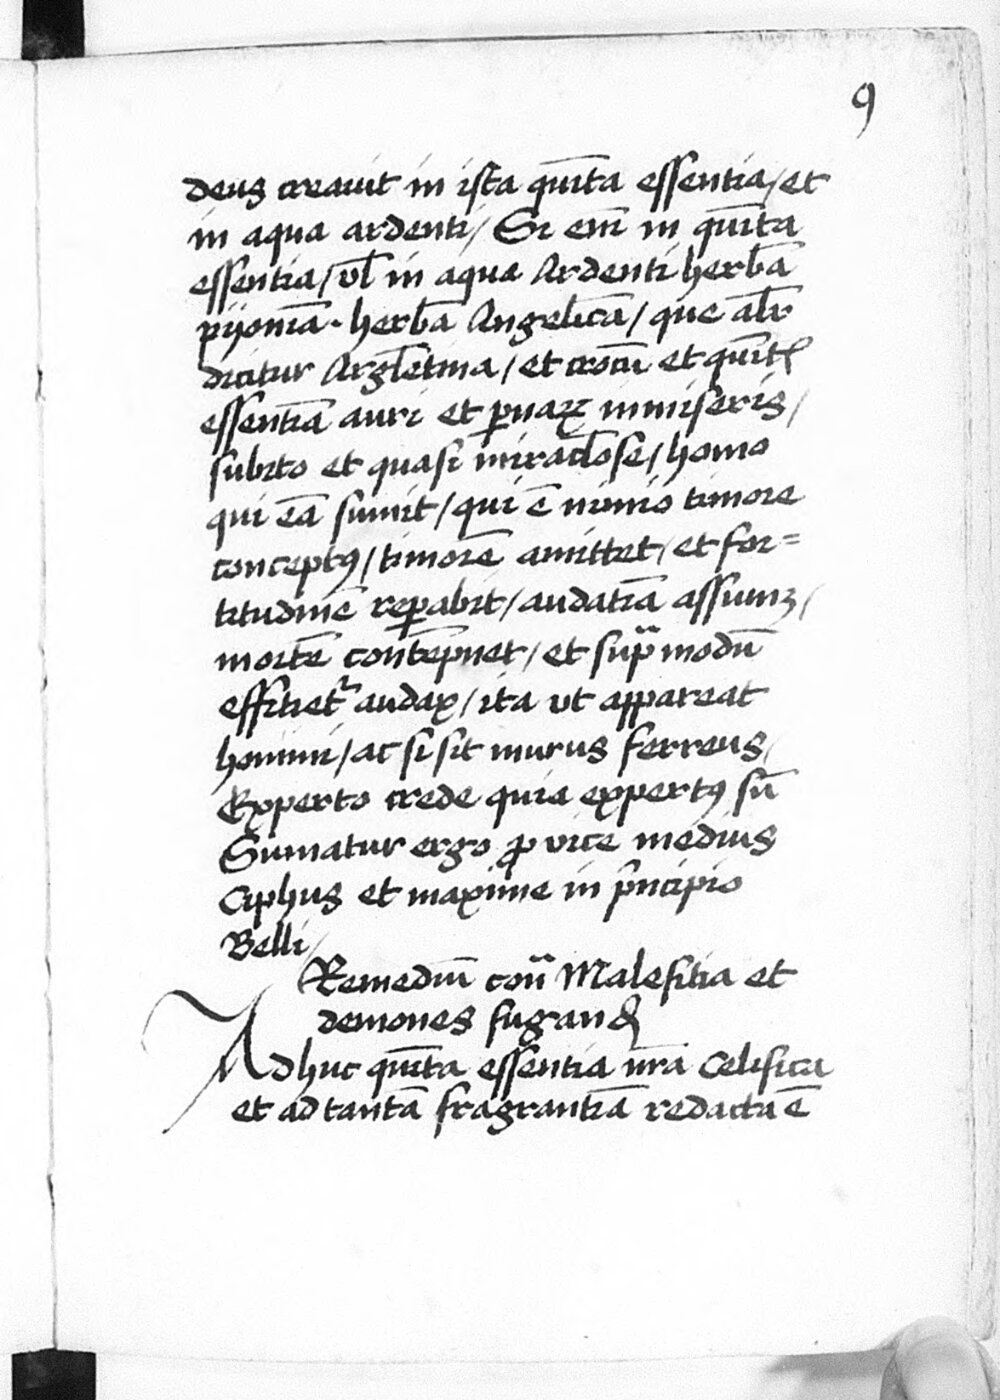 9
deus creauit in ista qui̅ta essentia / et
in aqua ardenti / Si eni̅ in qui̅ta
essentia / vl̅ in aqua Ardenti herba̅
pijonia̅ . herba̅ Angelica̅ / que alr̅
dicitur Argle̅tina / et crocu̅ et
essentia̅ auri et inmiseris /
subito et quasi miracl̅ose / homo
qui ea̅ sumit / qui e̅ nimio timore
conceptꝯ / timore̅ amittet / et for=
titudine̅ reꝑabit / audatia̅ assumꝫ /
morte̅ conte̅pnet / et sup̲ modu̅
effitietr̅ audax / ita vt appareat
homini / ac si sit murus ferreus /
Experto crede quia expertꝯ su̅
Sumatur ergo ꝓ vice medius
Ciphus et maxime in pn̅cipio
Belli /
Remediu̅ Malefitia et
demones
Adhuc qui̅ta essentia nr̅a Celifica
et ad tanta̅ fragrantia̅ redacta e̅